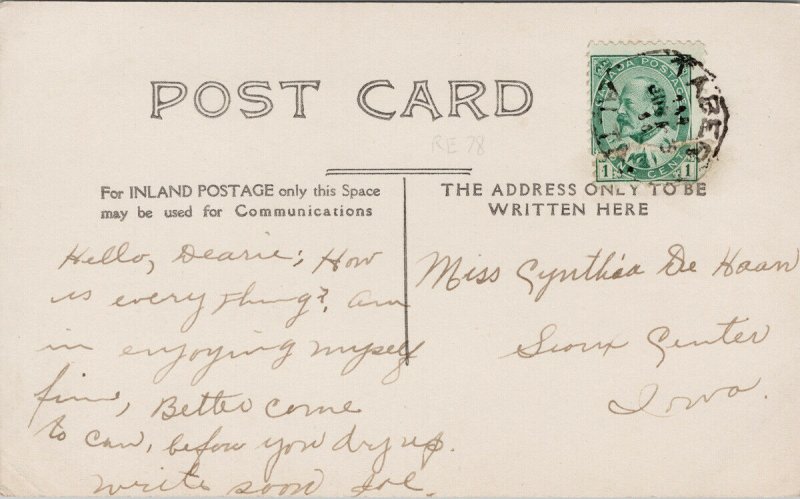 POST CARD
RE 78
For INLAND POSTAGE only this Space
may be used for Communications
THE ADDRESS ONLY TO BE
WRITTEN HERE
CANADA POSTAGE
1 CENT 1
TABER
Hello, Dearie; How
is everything? am
in enjoying myself
fine, Better come
to Can, before you dry up.
write soon
Miss Cynthia De Haan
Sioux Center
Iowa.